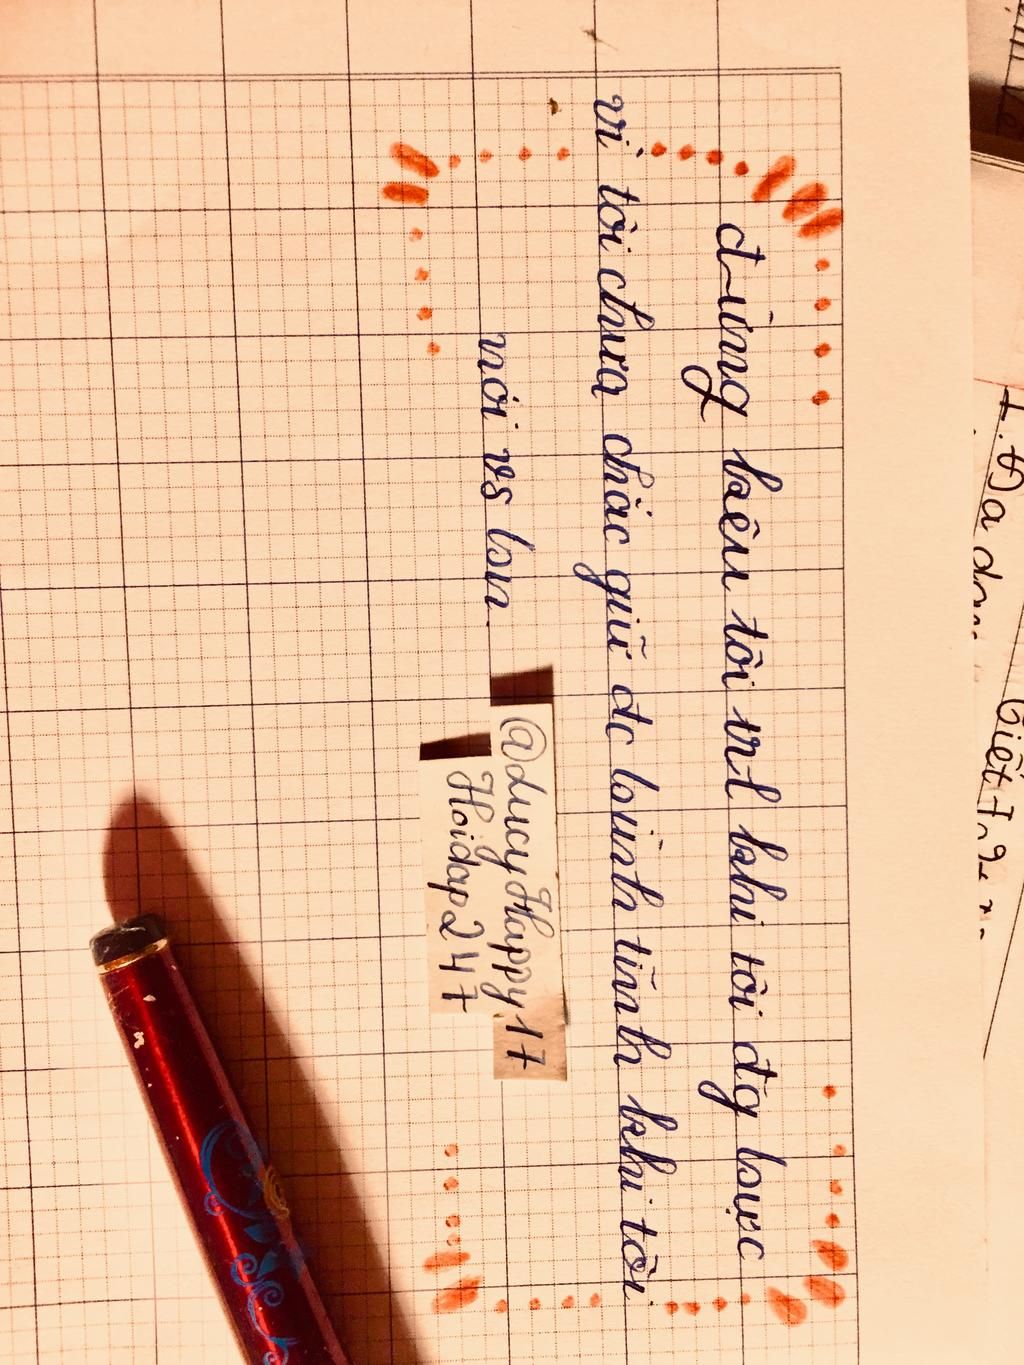 đừng kêu tôi trl khi tôi đg bực
vì tôi chưa chắc giữ đc bình tĩnh khi tôi
nói vs bn
@LucyHappy17
Hoidap247